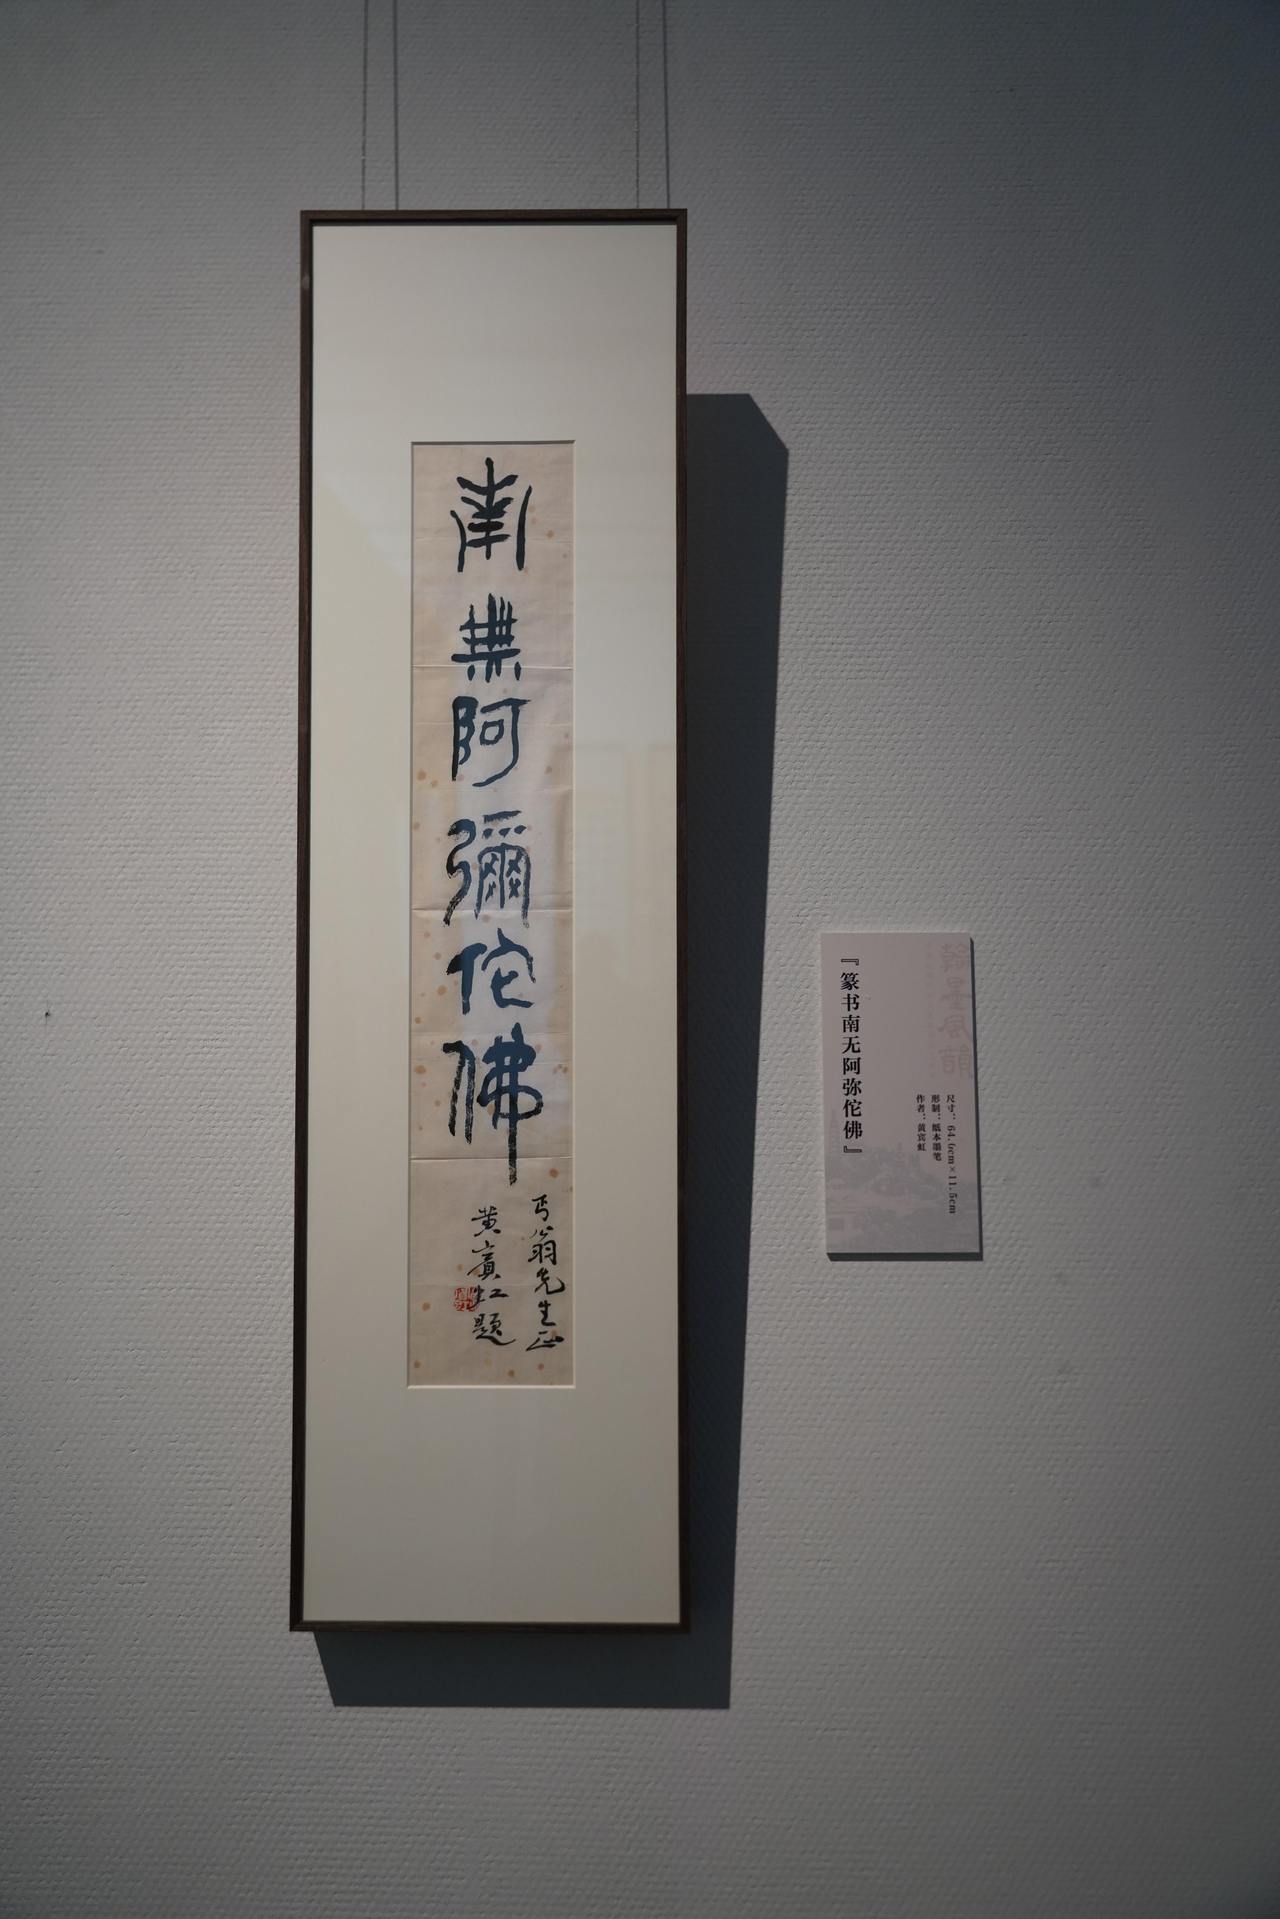 南無阿彌佗佛
丏翁先生正
黄賓虹題
翰墨
尺寸：64.6cm×11.5cm
形制：纸本墨笔
作者：黄宾虹
『篆书南无阿弥佗佛』